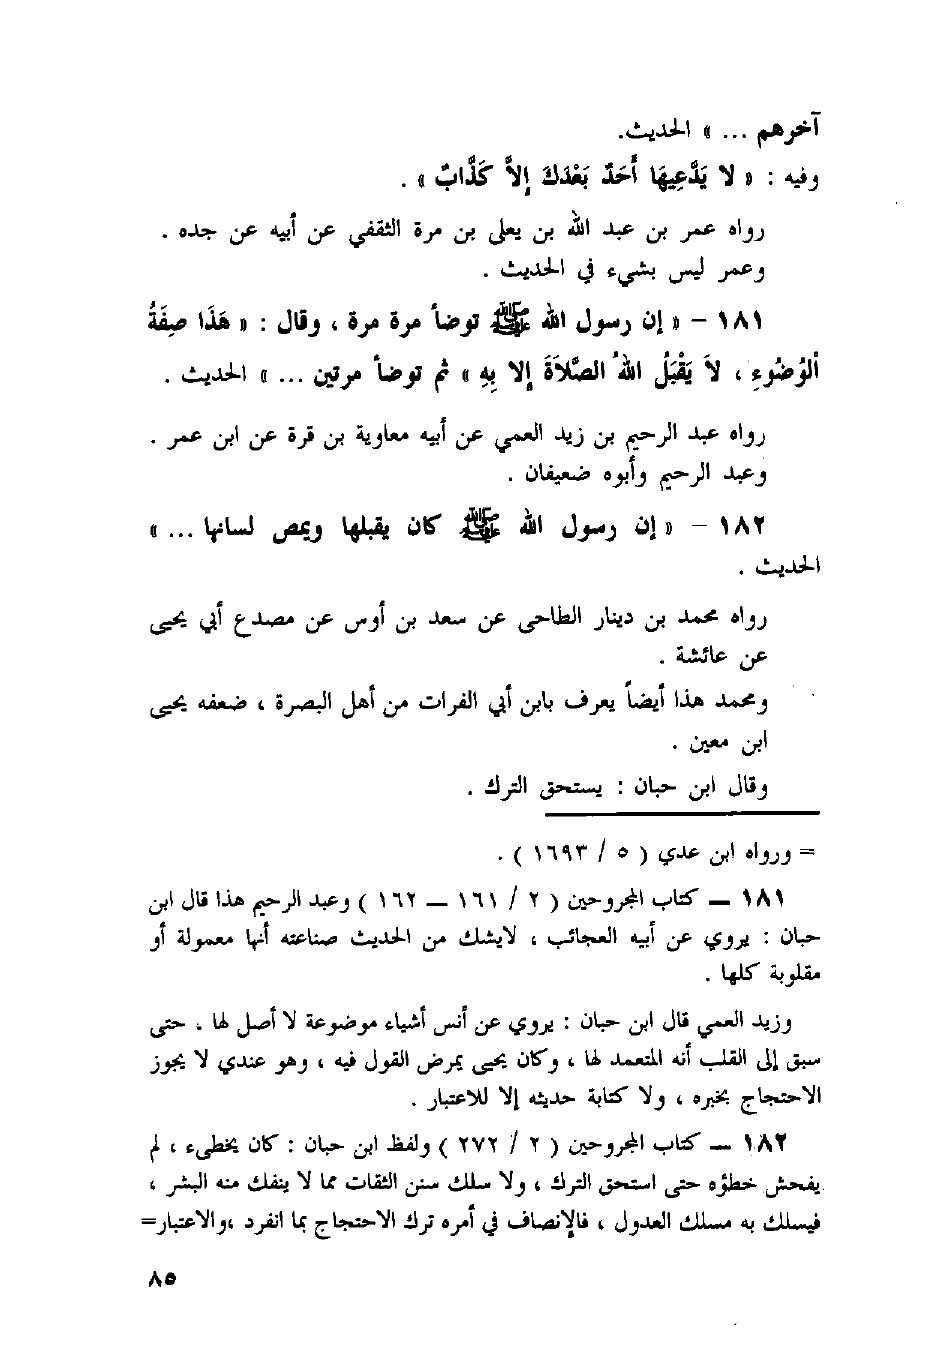 آخرهم ... » الحديث.
وفيه : « لا يَدَّعِيهَا أَحَدٌ بَعْدَكَ إِلاَّ كَذَّابٌ » .
رواه عمر بن عبد الله بن يعلى بن مرة الثقفي عن أبيه عن جده .
وعمر ليس بشيء في الحديث .
١٨١ – « إن رسول الله ﷺ توضأ مرة مرة ، وقال : « هَذَا صِفَةُ
اْلوُضُوءِ ، لاَ يَقْبَلُ اللهُ الصَّلاَةَ إلا بِهِ » ثم توضأ مرتين ... » الحديث .
رواه عبد الرحيم بن زيد العمي عن أبيه معاوية بن قرة عن ابن عمر .
وعبد الرحيم وأبوه ضعيفان .
١٨٢ – « إن رسول الله ﷺ كان يقبلها ويمص لسانها ... »
الحديث .
رواه محمد بن دينار الطاحى عن سعد بن أوس عن مصدع أبي يحيى
عن عائشة .
ومحمد هذا أيضاً يعرف بابن أبي الفرات من أهل البصرة ، ضعفه يحيى
ابن معين .
وقال ابن حبان : يستحق الترك .
= ورواه ابن عدي ( ٥ / ١٦٩٣ ) .
١٨١ – كتاب المجروحين ( ٢ / ١٦١ – ١٦٢ ) وعبد الرحيم هذا قال ابن
حبان : يروي عن أبيه العجائب ، لايشك من الحديث صناعته أنها معمولة أو
مقلوبة كلها .
وزيد العمي قال ابن حبان : يروي عن أنس أشياء موضوعة لا أصل لها ، حتى
سبق إلى القلب أنه المتعمد لها ، وكان يحيى يمرض القول فيه ، وهو عندي لا يجوز
الاحتجاج بخبره ، ولا كتابة حديثه إلا للاعتبار .
١٨٢ – كتاب المجروحين ( ٢ / ٢٧٢ ) ولفظ ابن حبان : كان يخطىء ، لم
يفحش خطؤه حتى استحق الترك ، ولا سلك سنن الثقات مما لا ينفك منه البشر ،
فيسلك به مسلك العدول ، فالإنصاف في أمره ترك الاحتجاج بما انفرد ،والاعتبار=
٨٥